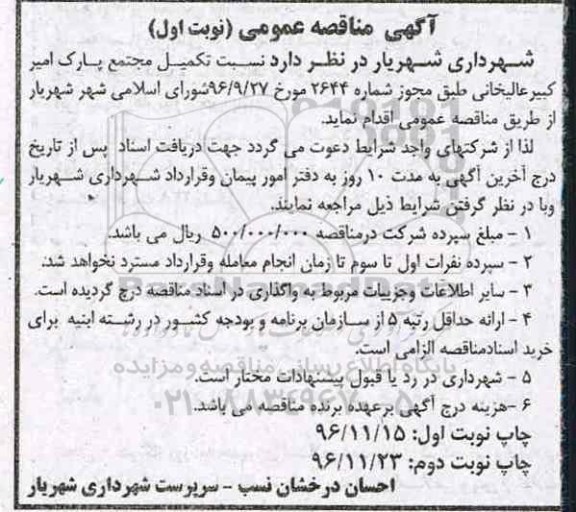 آگهی مناقصه عمومی (نوبت اول)
شهرداری شهریار در نظر دارد نسبت تکمیل مجتمع پارک امیر
کبیرعالیخانی طبق مجوز شماره ۲۶۴۴ مورخ ۹۶/۹/۲۷شورای اسلامی شهر شهریار
از طریق مناقصه عمومی اقدام نماید.
لذا از شرکتهای واجد شرایط دعوت می گردد جهت دریافت اسناد پس از تاریخ
درج آخرین آگهی به مدت ۱۰ روز به دفتر امور پیمان وقرارداد شهرداری شهریار
وبا در نظر گرفتن شرایط ذیل مراجعه نمایند.
۱ - مبلغ سپرده شرکت درمناقصه ۵۰۰/۰۰۰/۰۰۰ ریال می باشد.
۲ - سپرده نفرات اول تا سوم تا زمان انجام معامله وقرارداد مسترد نخواهد شد.
۳ - سایر اطلاعات وجزییات مربوط به واگذاری در اسناد مناقصه درج گردیده است.
۴ - ارائه حداقل رتبه ۵ از سازمان برنامه و بودجه کشور در رشته ابنیه برای
خرید اسنادمناقصه الزامی است.
۵ - شهرداری در رد یا قبول پیشنهادات مختار است.
۶ -هزینه درج آگهی برعهده برنده مناقصه می باشد.
چاپ نوبت اول: ۹۶/۱۱/۱۵
چاپ نوبت دوم: ۹۶/۱۱/۲۳
احسان درخشان نسب - سرپرست شهرداری شهریار
ParsNamadData
پایگاه اطلاع رسانی مناقصه و مزایده
۰۲۱-۸۸۳۴۹۶۷۰-۵